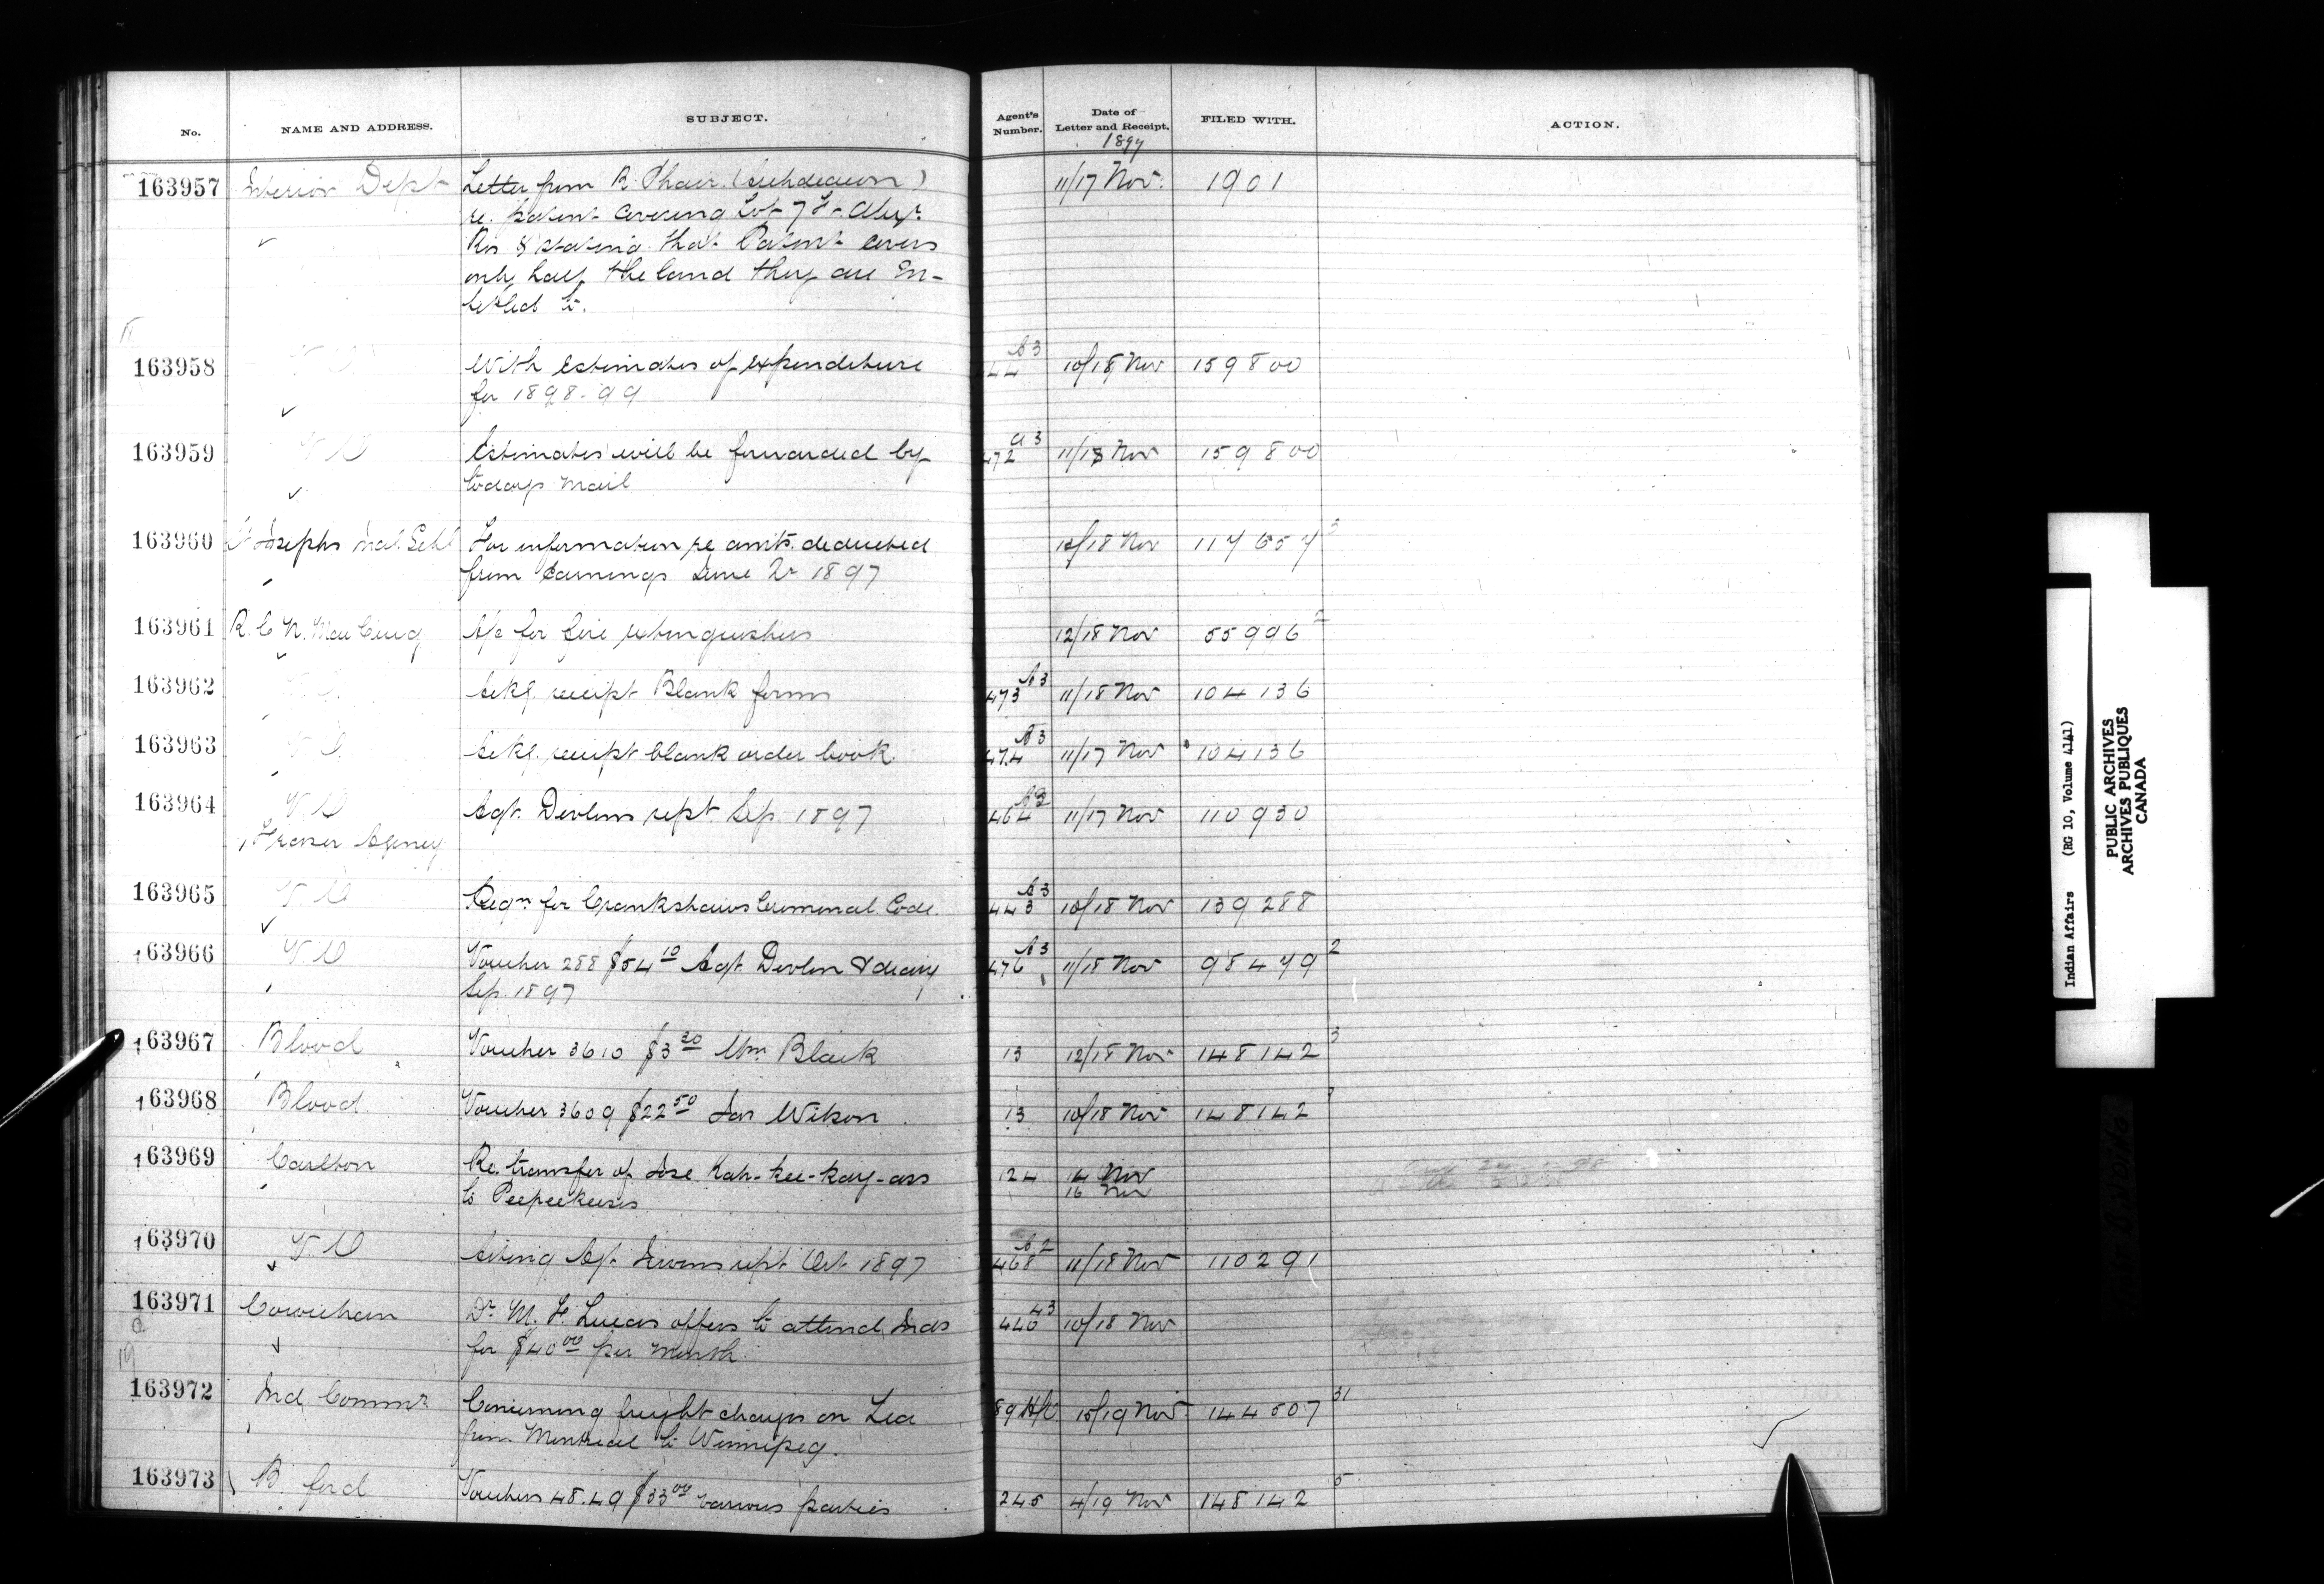 No. NAME AND ADDRESS. SUBJECT. Agent's Number. Date of Letter and Receipt. FILED WITH. ACTION.
1897
163957 Interior Dept Letter from R. Phair (Archdeacon) 11/17 Nov. 1901
re. patent covering Lot 7 Ft Alexr
Res & stating that Patent covers
only half the land they are en-
titled to.
163958 V O With Estimates of expenditure 10/18 Nov 159800
for 1898-99
163959 V O Estimates will be forwarded by 472 A3 11/18 Nov 159800
todays mail
163960 St Josephs Ind. Schl For information re amts. deducted 12/18 Nov 117657 3
from Earnings June Qr 1897
163961 A/c for fire extinguishers 12/18 Nov 55996 2
163962 V O Ackg. receipt Blank forms 473 A3 11/18 Nov 104136
163963 V O Ackg. receipt blank order book 474 A3 11/17 Nov 104136
163964 V O Agt. Devlins rept. Sep. 1897 464 11/17 Nov 110930
Fraser Agency
163965 V O Reqn for Crankshaws Criminal Code. 443 A3 10/18 Nov 139288
163966 V O Voucher 288 $54 10 Agt. Devlin 476 A3 11/18 Nov 98479 2
Sep. 1897
163967 Blood Voucher 3610 $3 20 Wm Black 13 12/18 Nov 148142 3
163968 Blood Voucher 3609 $22 50 Jas Wilson 13 10/18 Nov 148142
163969 Carlton Re. transfer of Jose. Kah-kee-kay-ass 124 14 Nov
to Peepeekeesis 16 Nov
163970 V. O Acting Agt. rept Oct 1897 468 A2 11/18 Nov 110291
163971 Cowichan Dr. M. F. Lucas offers to attend Inds 10/18 Nov
for $40 00 per month
163972 Ind Commr. Concerning freight charges on Tea 89 15/19 Nov 144507 31
from Montreal to Winnipeg.
163973 B. ford Vouchers 48.49 $33 00 various parties 245 4/19 Nov 148142 5
Indian Affairs (RG 10, Volume 4141)
PUBLIC ARCHIVES
ARCHIVES PUBLIQUES
CANADA